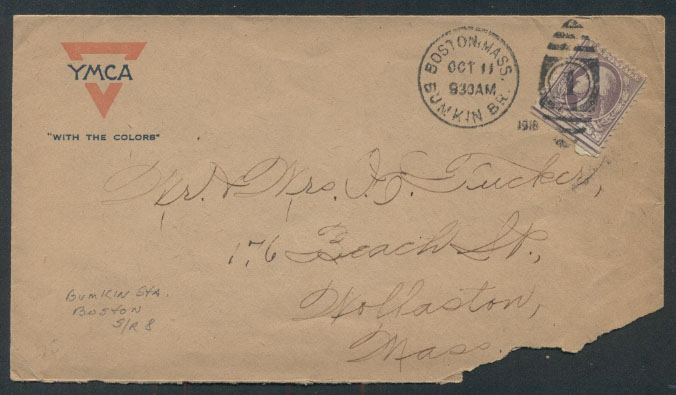 YMCA
"WITH THE COLORS"
BOSTON, MASS.
OCT 11
930AM
BUMKIN BR.
1918
1
Mr. & Mrs. H. Tucker,
176 Beach St.,
Wollaston,
Mass.
BUMKIN STA.
BOSTON
S/R 8